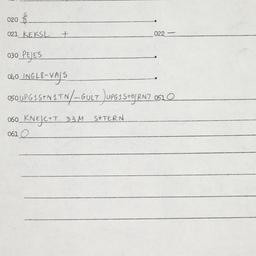 020 $ .
021 KEKSL + 022 —
030 PEJES .
040 INGLB-VAJS .
050 UPG1S+N1TN/-GULT)UPG1S+0JRN7 051 O
060 KNEJC+T D3M S+TERN
061 O